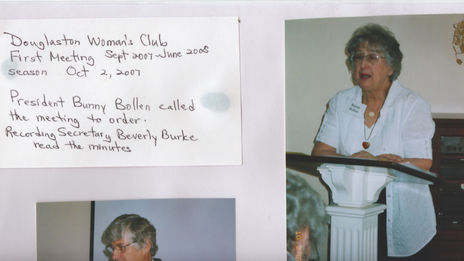 Douglaston Woman's Club
First Meeting Sept 2007-June 2008
season Oct 2, 2007
President Bunny Bollen called
the meeting to order.
Recording Secretary Beverly Burke
read the minutes